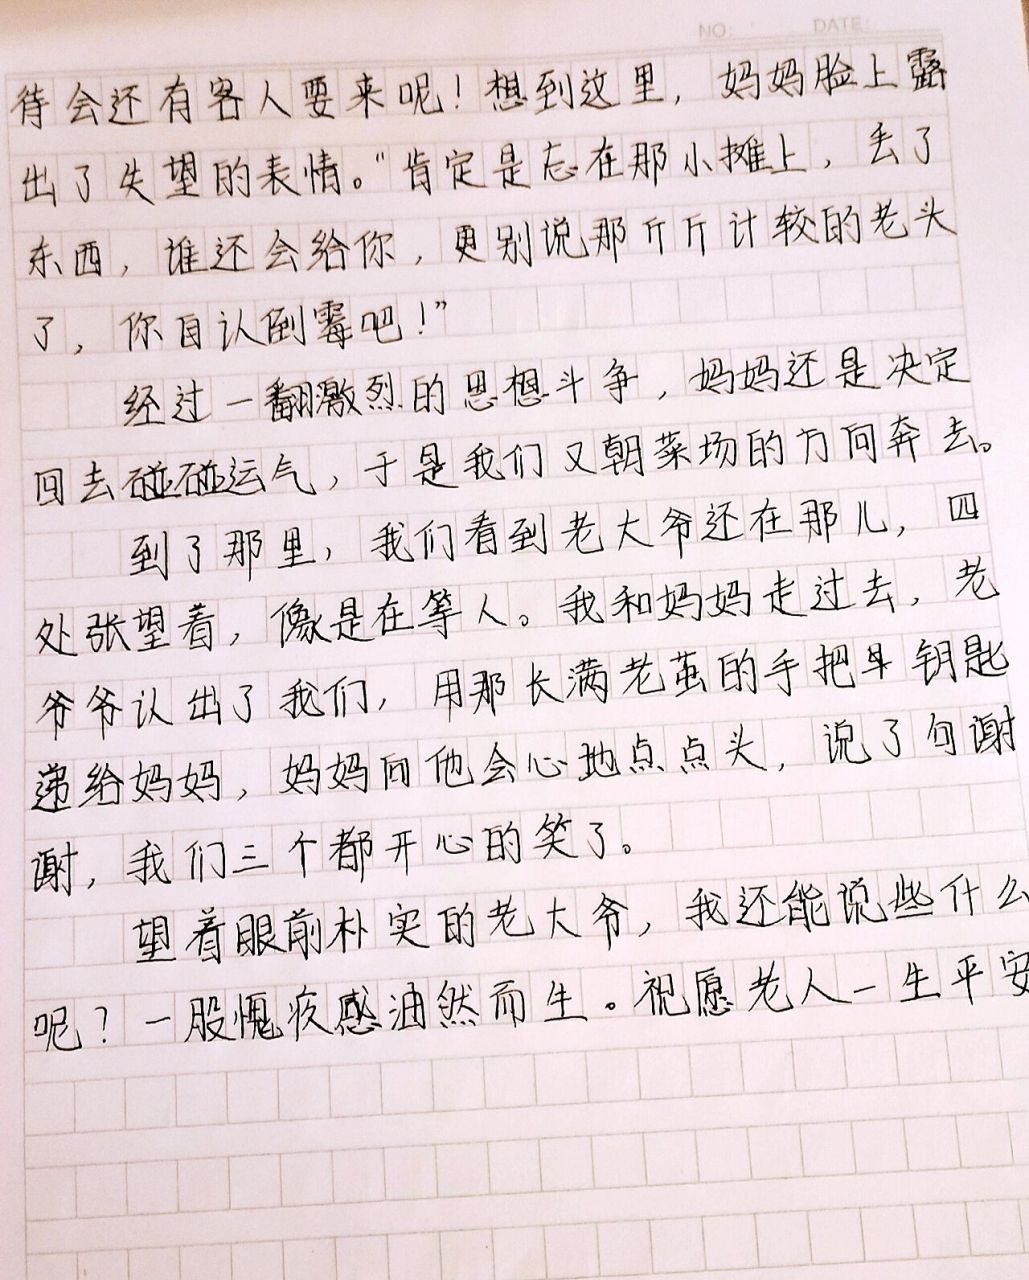 NO: DATE:
待会还有客人要来呢！想到这里，妈妈脸上露
出了失望的表情。“肯定是忘在那小摊上，丢了
东西，谁还会给你，更别说那斤斤计较的老头
了，你自认倒霉吧！”
经过一翻激烈的思想斗争，妈妈还是决定
回去碰碰运气，于是我们又朝菜场的方向奔去。
到了那里，我们看到老大爷还在那儿，四
处张望着，像是在等人。我和妈妈走过去，老
爷爷认出了我们，用那长满老茧的手把车钥匙
递给妈妈，妈妈向他会心地点点头，说了句谢
谢，我们三个都开心的笑了。
望着眼前朴实的老大爷，我还能说些什么
呢？一股愧疚感油然而生。祝愿老人一生平安